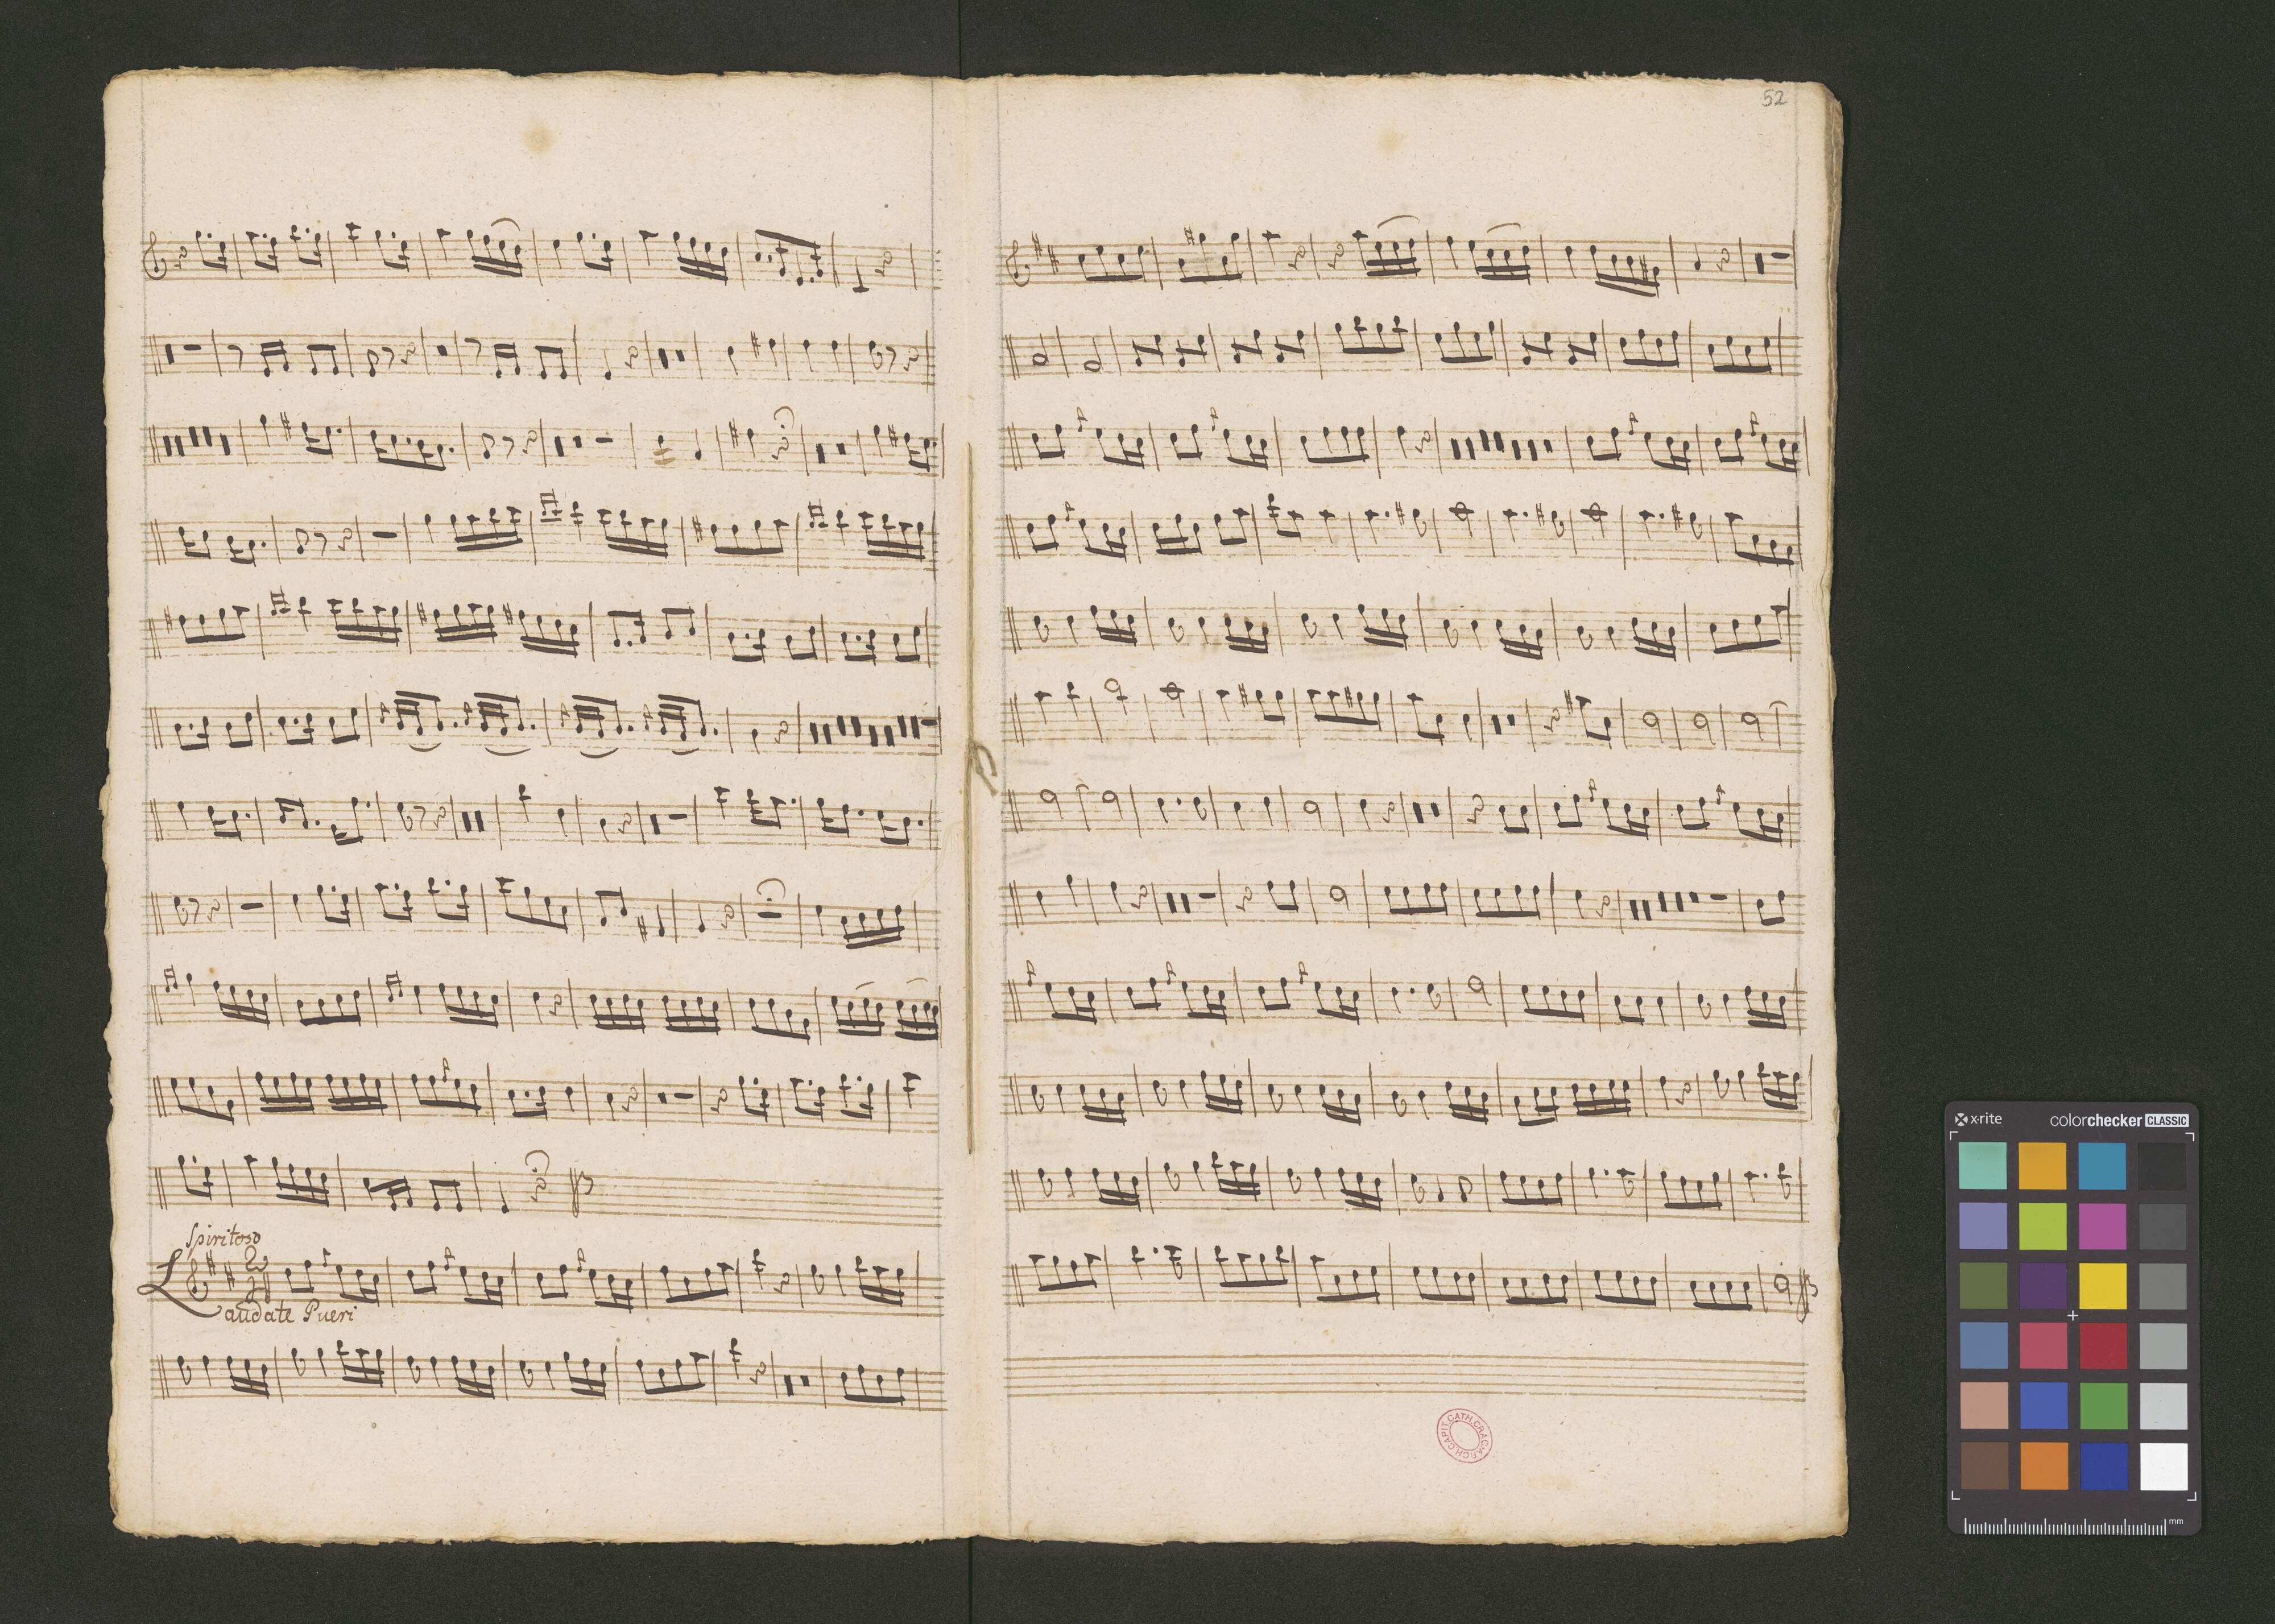 52
Spiritoso
Laudate Pueri
ARCH. CAPIT. CATH. CRAC.
x-rite
colorchecker CLASSIC
mm